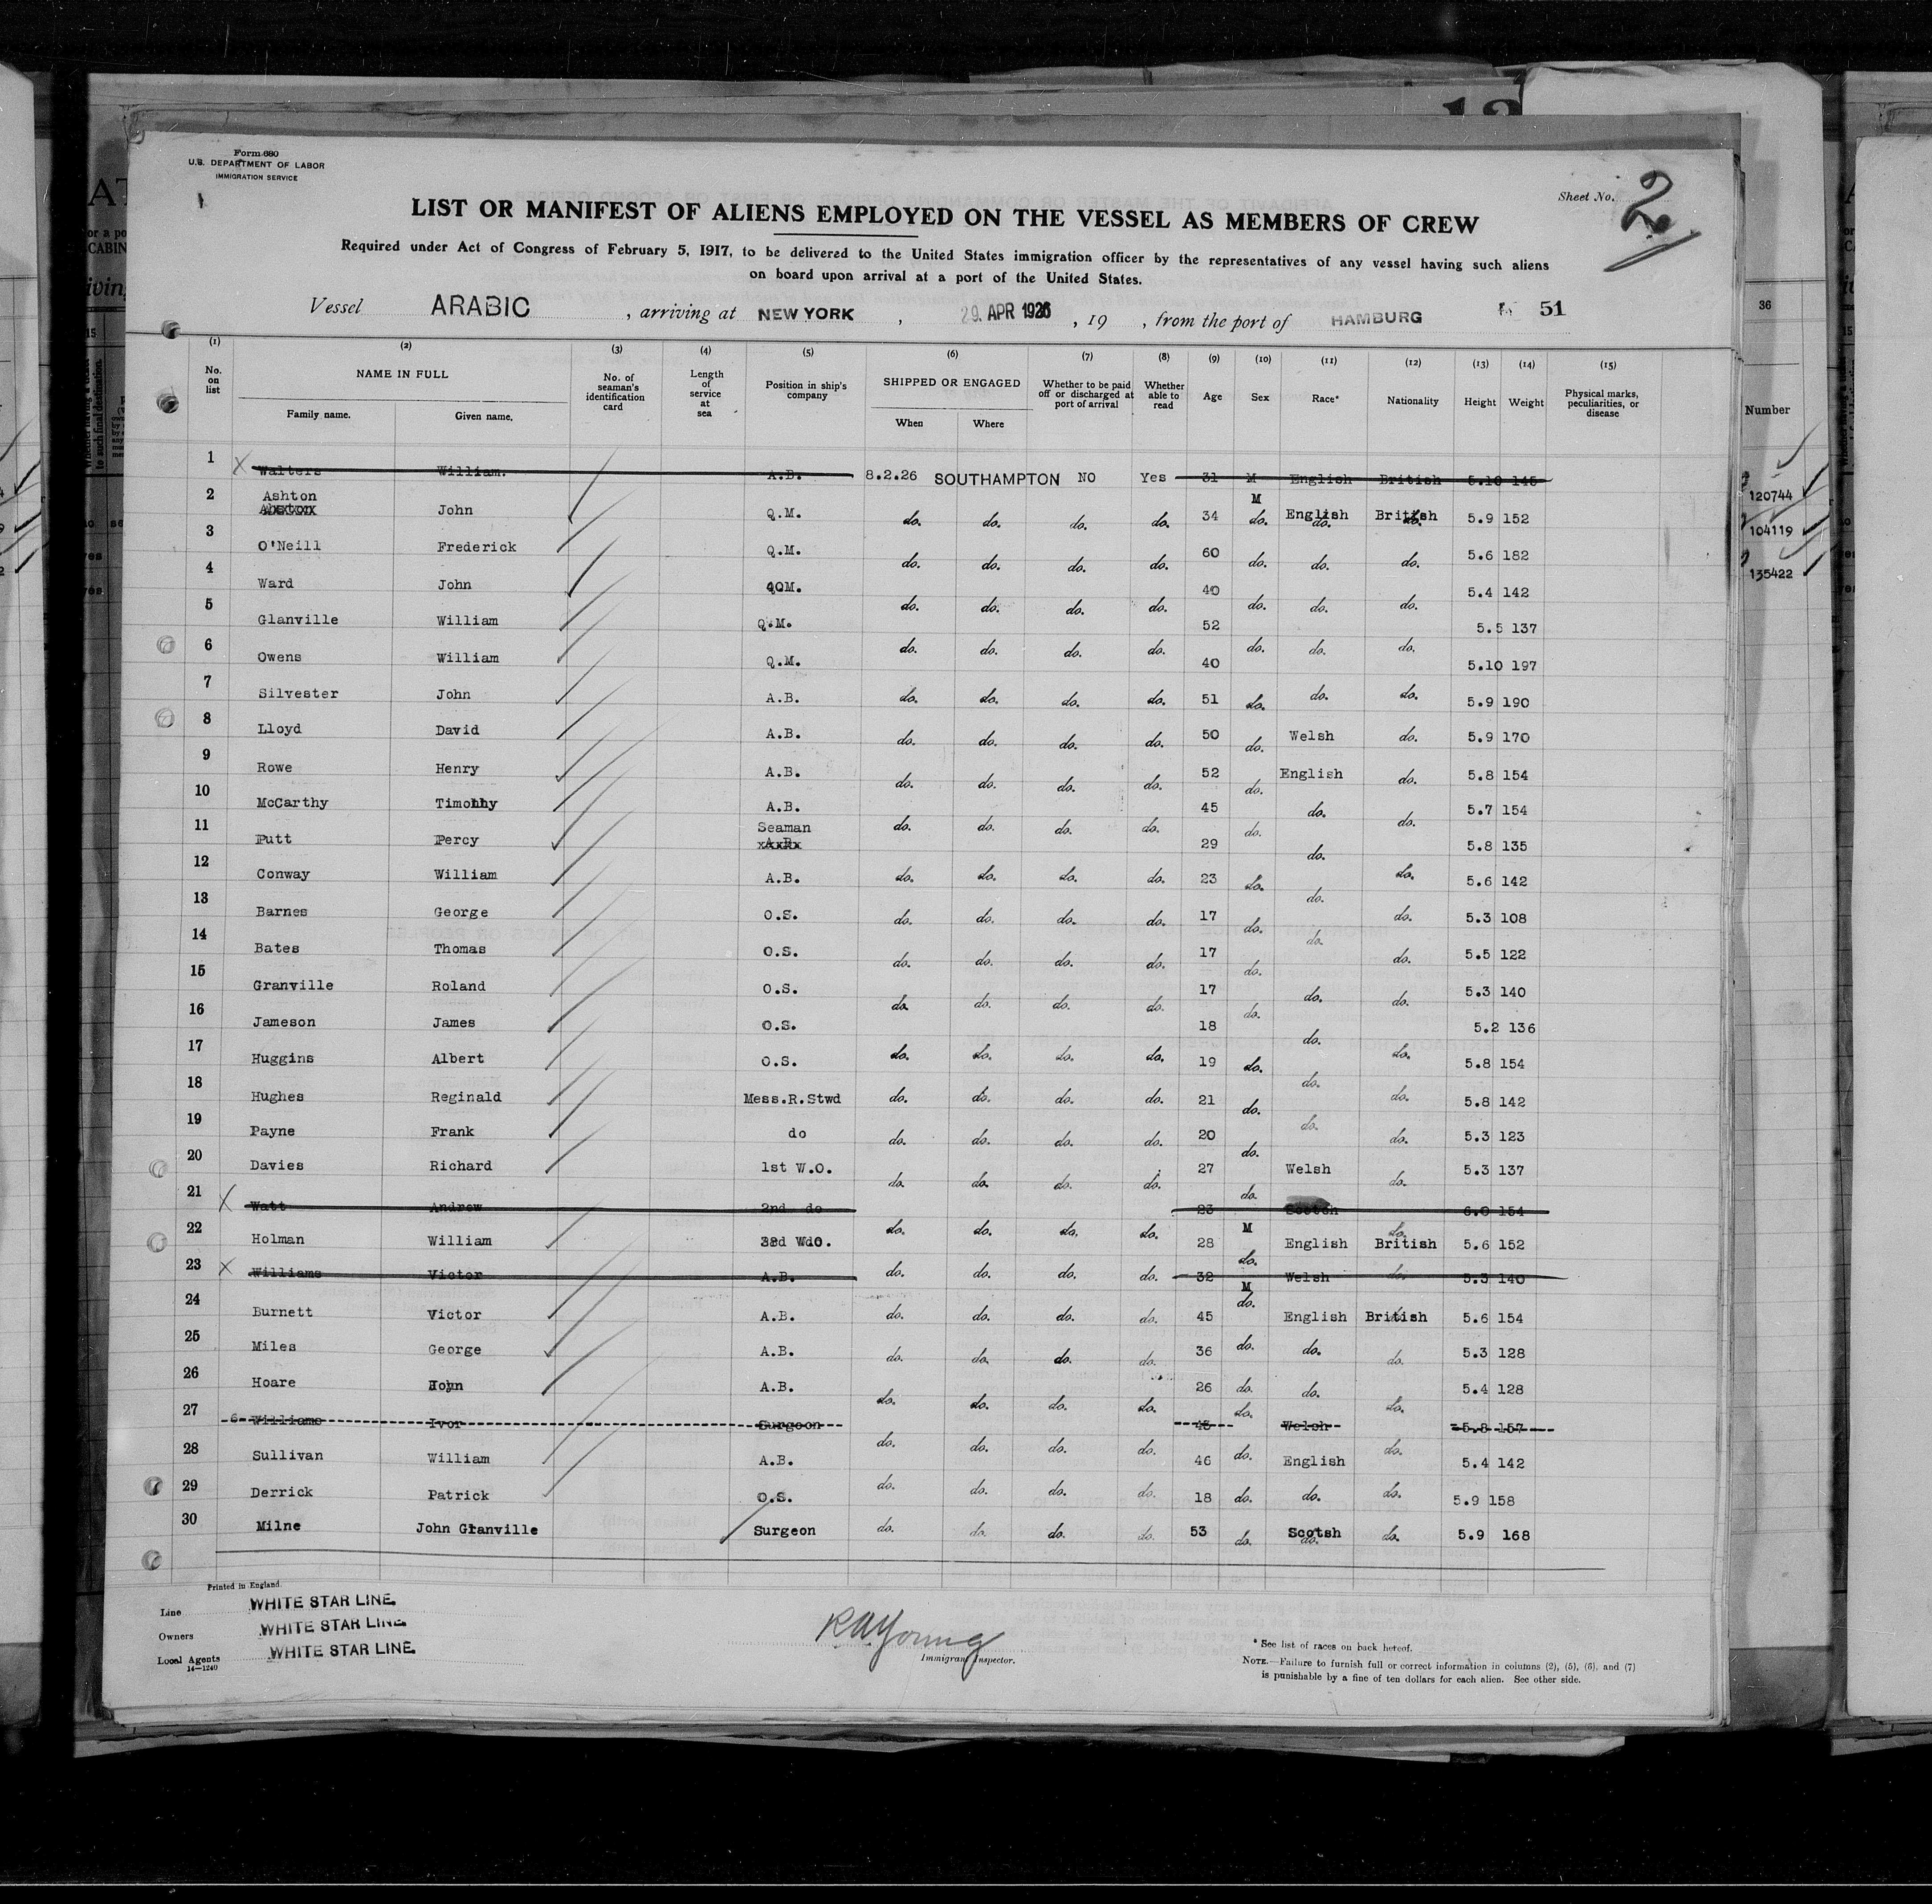 Form 680
U.S. DEPARTMENT OF LABOR
IMMIGRATION SERVICE
Sheet No. 2
LIST OR MANIFEST OF ALIENS EMPLOYED ON THE VESSEL AS MEMBERS OF CREW
Required under Act of Congress of February 5, 1917, to be delivered to the United States immigration officer by the representatives of any vessel having such aliens
on board upon arrival at a port of the United States.
Vessel ARABIC, arriving at NEW YORK, 29. APR 1926, 19 , from the port of HAMBURG 51
(1) (2) (3) (4) (5) (6) (7) (8) (9) (10) (11) (12) (13) (14) (15)
No. on list NAME IN FULL Family name. Given name. No. of seaman's identification card Length of service at sea Position in ship's company SHIPPED OR ENGAGED When Where Whether to be paid off or discharged at port of arrival Whether able to read Age Sex Race* Nationality Height Weight Physical marks, peculiarities, or disease
1 X Walters William. A.B. 8.2.26 SOUTHAMPTON NO Yes 31 M English British 5.10 145
2 Ashton John Q.M. do. do. do. do. 34 M do. English do. British do. 5.9 152
3 O'Neill Frederick Q.M. do. do. do. do. 60 do. do. do. 5.6 182
4 Ward John QM. do. do. do. do. 40 do. do. do. 5.4 142
5 Glanville William Q.M. do. do. do. do. 52 do. do. do. 5.5 137
6 Owens William Q.M. do. do. do. do. 40 do. do. do. 5.10 197
7 Silvester John A.B. do. do. do. do. 51 do. do. do. 5.9 190
8 Lloyd David A.B. do. do. do. do. 50 do. Welsh do. 5.9 170
9 Rowe Henry A.B. do. do. do. do. 52 do. English do. 5.8 154
10 McCarthy Timothy A.B. do. do. do. do. 45 do. do. do. 5.7 154
11 Putt Percy Seaman A.B. 29 do. 5.8 135
12 Conway William A.B. do. do. do. do. 23 do. do. do. 5.6 142
13 Barnes George O.S. do. do. do. do. 17 do. do. do. 5.3 108
14 Bates Thomas O.S. do. do. do. do. 17 do. do. 5.5 122
15 Granville Roland O.S. do. do. do. do. 17 do. do. do. 5.3 140
16 Jameson James O.S. 18 do. 5.2 136
17 Huggins Albert O.S. do. do. do. do. 19 do. do. do. 5.8 154
18 Hughes Reginald Mess.R.Stwd do. do. do. do. 21 do. do. 5.8 142
19 Payne Frank do do. do. do. do. 20 do. do. do. 5.3 123
20 Davies Richard 1st W.O. do. do. do. do. 27 do. Welsh do. 5.3 137
21 X Watt Andrew 2nd do 23 Scotch 6.0 154
22 Holman William 3rd W.O. do. do. do. do. 28 M do. English do. British 5.6 152
23 X Williams Victor A.B. do. do. do. do. 32 M Welsh do. 5.3 140
24 Burnett Victor A.B. do. do. do. do. 45 do. English British do. 5.6 154
25 Miles George A.B. do. do. do. do. 36 do. do. do. 5.3 128
26 Hoare John A.B. do. do. do. do. 26 do. do. do. 5.4 128
27 6 Williams Ivor Surgeon 45 do. Welsh 5.8 157
28 Sullivan William A.B. do. do. do. do. 46 do. English do. 5.4 142
29 Derrick Patrick O.S. do. do. do. do. 18 do. do. do. 5.9 158
30 Milne John Granville Surgeon do. do. do. do. 53 do. Scotsh do. do. 5.9 168
Printed in England.
Line WHITE STAR LINE.
Owners WHITE STAR LINE.
Local Agents WHITE STAR LINE.
14-1240
R A Young
Immigrant Inspector.
* See list of races on back hereof.
NOTE.—Failure to furnish full or correct information in columns (2), (5), (6), and (7)
is punishable by a fine of ten dollars for each alien. See other side.
36
Number
120744
104119
135422